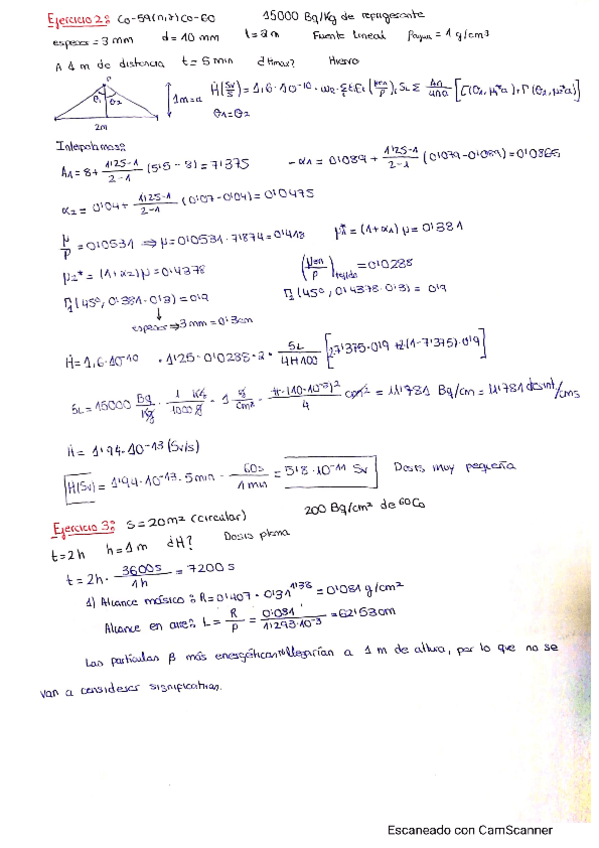 Ejercicio 2: Co-59(n,γ)Co-60 15000 Bq/Kg de refrigerante
espesor = 3 mm d = 10 mm l = 2m Fuente lineal ρagua = 1 g/cm³
A 1 m de distancia t = 5 min d Hmax? Hierro
P
θ1 θ2
1m = a
2m
Ḣ(Sv/s) = 1,6·10⁻¹⁰ · ωR ·
θ1 = θ2
Interpolamos:
A1 = 8 + (1'25-1)/(2-1) (5'5 - 8) = 7'375 -α1 = 0'089 + (1'25-1)/(2-1) (0'079 - 0'089) = 0'0865
α2 = 0'04 + (1'25-1)/(2-1) (0'07 - 0'04) = 0'0475
μ/ρ = 0'0531 ⇒ μ = 0'0531 · 7'874 = 0'418 μ1* = (1+α1) μ = 0'381
μ2* = (1+α2) μ = 0'4378 (μen/ρ)tejido = 0'0288
Γ1 (45º, 0'381 · 0'3) = 0'9 Γ2 (45º, 0'4378 · 0'3) = 0'9
espesor ⇒ 3 mm = 0'3cm
Ḣ = 1,6·10⁻¹⁰ · 1'25 · 0'0288 · 2 · SL/4π100 [2·7'375·0'9 + 2(1-7'375)·0'9]
SL = 15000 Bq/Kg · 1 Kg/1000 g · 1 g/cm³ · π·(10·10⁻³)²/4 cm² = 11'781 Bq/cm = 11'781 desint/cms
Ḣ = 1'94·10⁻¹³ (Sv/s)
H(Sv) = 1'94·10⁻¹³ · 5min · 60s/1min = 5'8·10⁻¹¹ Sv Dosis muy pequeña
Ejercicio 3: S = 20m² (circular) 200 Bq/cm² de ⁶⁰Co
t = 2h h = 1 m d H? Dosis
t = 2h · 3600s/1h = 7200 s
1) Alcance másico: R = 0'407 · 0'31^1'38 = 0'081 g/cm²
Alcance en aire: L = R/ρ = 0'081/1'293·10⁻³ = 62'53cm
Las partículas β más energéticas no llegarían a 1 m de altura, por lo que no se
van a considerar significativas.
Escaneado con CamScanner